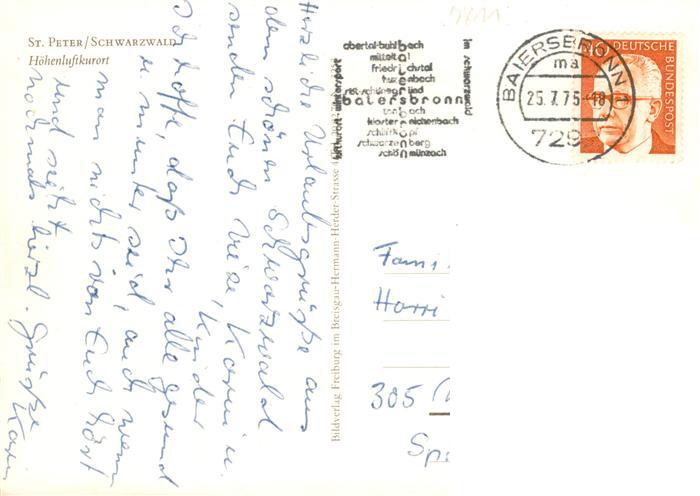 ST. PETER/SCHWARZWALD
Höhenluftkurort
Herzliche Urlaubsgrüße aus
dem schönen Schwarzwald
senden Euch viele, Karin u.
Kinder
Ich hoffe, daß Ihr alle gesund
u. munter seid, auch wenn
man nichts von Euch hört
und seid
nochmals herzl. Grüße
Karin
Bildverlag Freiburg im Breisgau-Hermann-Herder-Strasse
luftkurort · wintersport
obertal-buhlbach
mitteltal
friedrichstal
huzenbach
röt-schönegründ
baiersbronn
tonbach
kloster reichenbach
schliffkopf
schwarzenberg
schönmünzach
im schwarzwald
BAIERSBRONN 1
ma
25.7.75-18
729
40 DEUTSCHE
BUNDESPOST
Fami
Harri
305